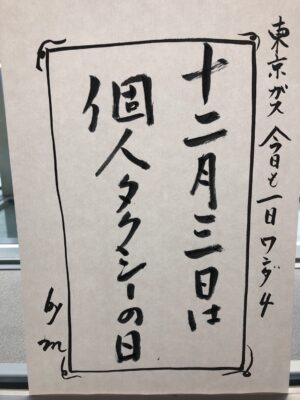 東京ガス 今日も一日ワンダ4
十二月三日は
個人タクシーの日
by m